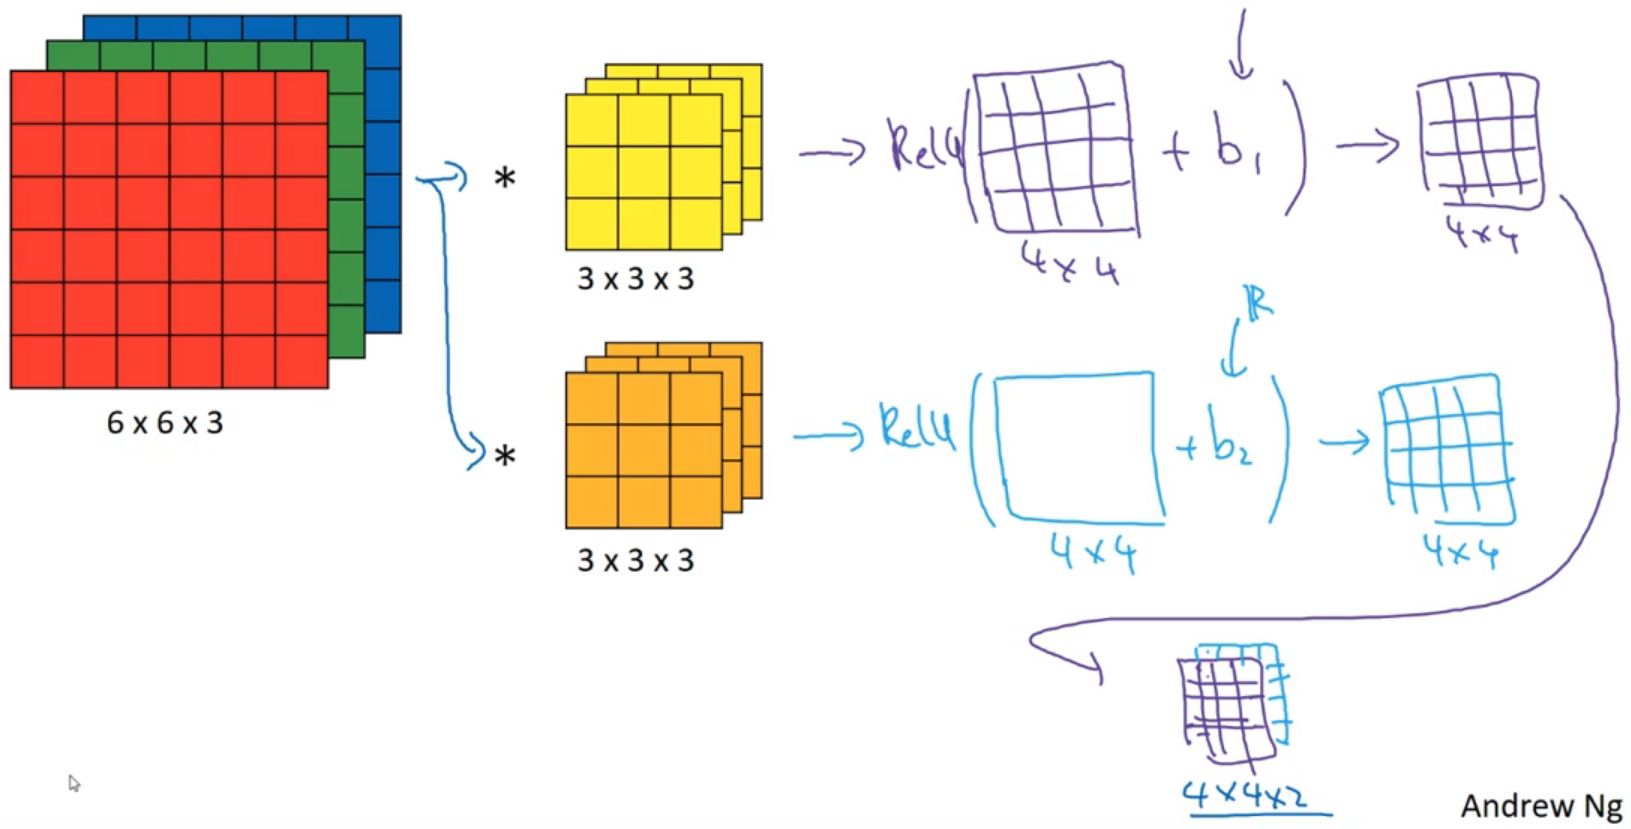 6 x 6 x 3
*
3 x 3 x 3
→ Relu( + b₁ ) →
4 x 4
4 x 4
*
3 x 3 x 3
ℝ
→ Relu( + b₂ ) →
4 x 4
4 x 4
4 x 4 x 2
Andrew Ng